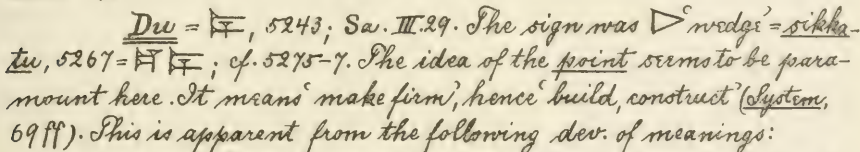 Du = 𒆕, 5243; Sa. III.29. The sign was ▷ 'wedge' = sikka-
tu, 5267 = 𒄑 𒆕; cf. 5275-7. The idea of the point seems to be para-
mount here. It means 'make firm', hence 'build, construct' (System,
69 ff). This is apparent from the following dev. of meanings: